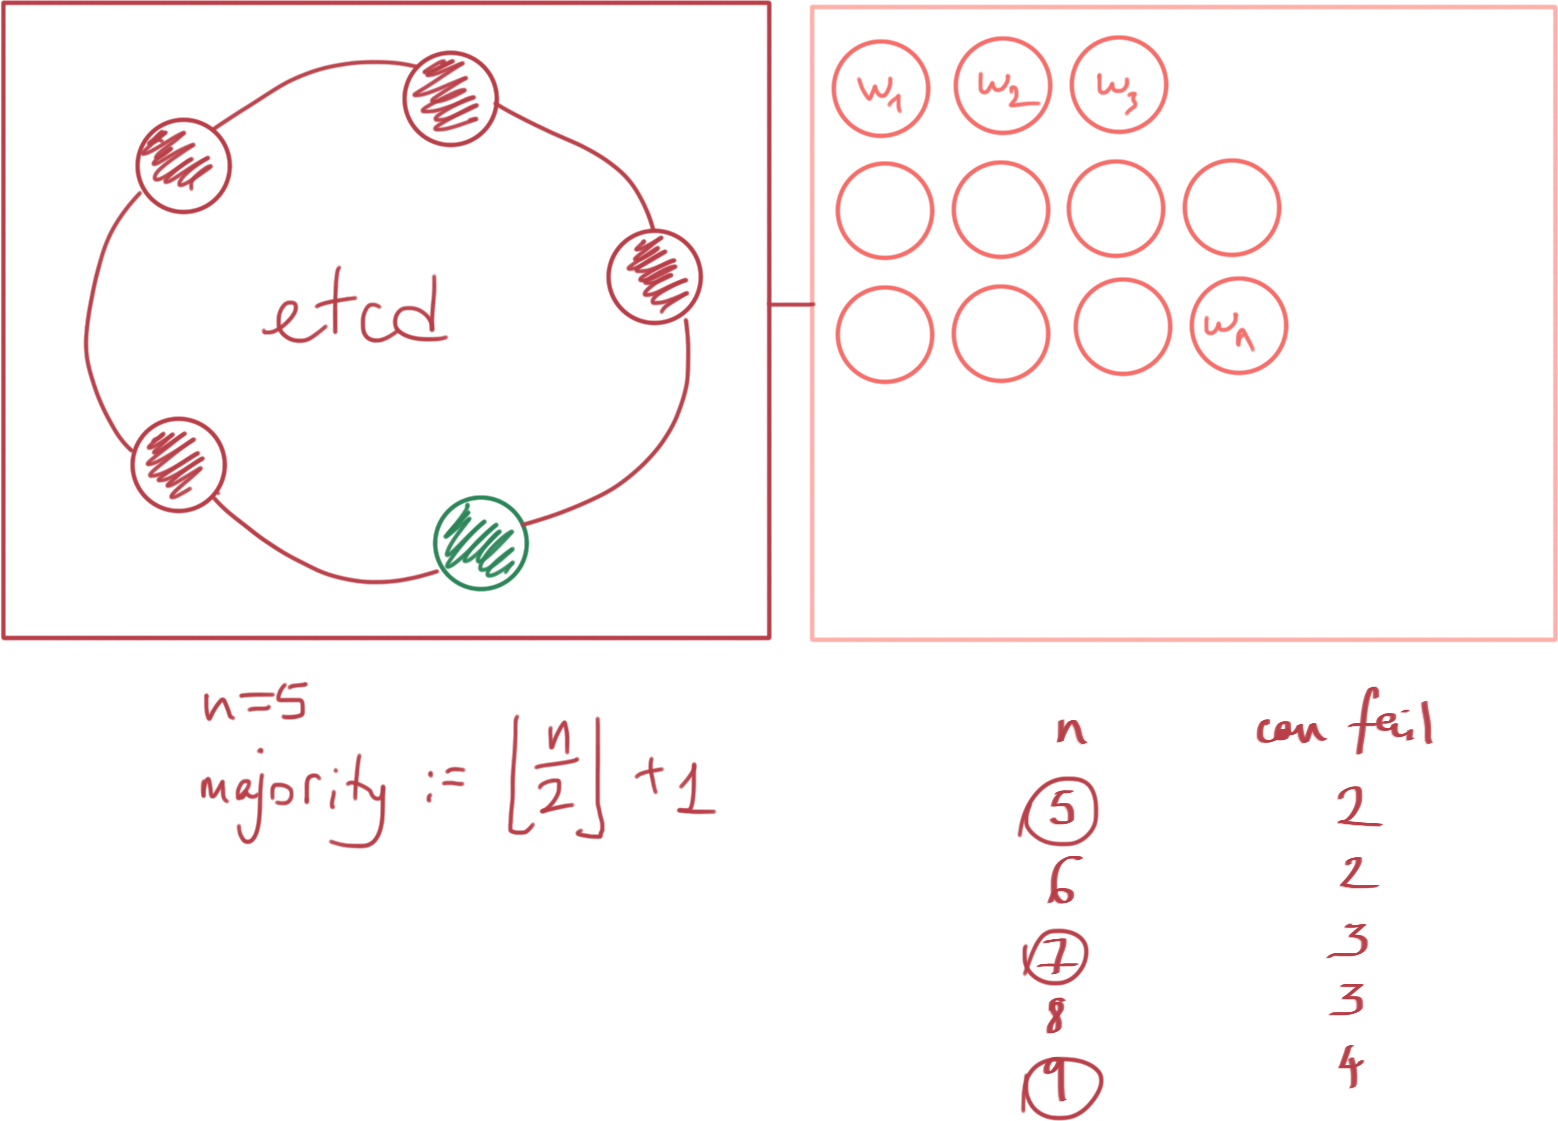 etcd
w1 w2 w3
wn
n=5
majority := ⌊n/2⌋ + 1
n can fail
5 2
6 2
7 3
8 3
9 4